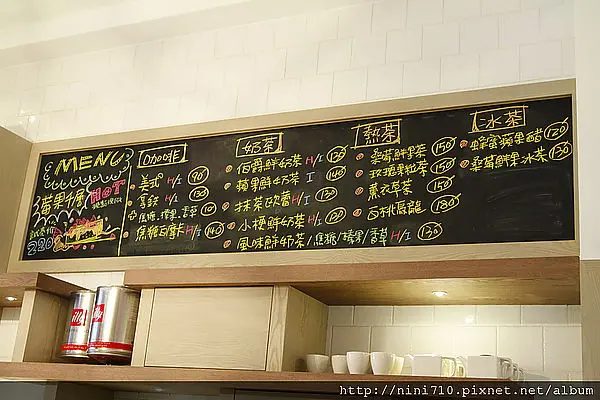 MENU
蘋果女屋
HOT
試賣價
220
coffee
美式 H/I 90
拿鐵 H/I 130
焦糖、榛果、香草 10
焦糖瑪奇朵 H/I 140
奶茶
伯爵鮮奶茶 H/I 120
蘋果鮮奶茶 I 140
抹茶歐蕾 H/I 130
小梗鮮奶茶 H/I 120
風味鮮奶茶/焦糖/榛果/香草 H/I 130
熱茶
桑莓鮮果茶 150
玫瑰果粒茶 150
薰衣草茶 150
白桃烏龍 180
冰茶
蜂蜜蘋果醋 120
桑莓鮮果冰茶 130
illy
illy
http://nini710.pixnet.net/album